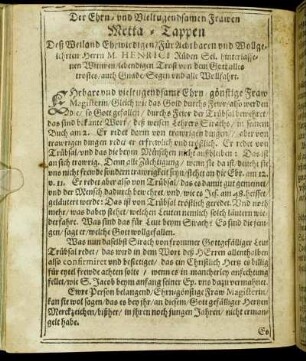 Der Ehrn- vnd Vieltugendsamen Frawen
Metta-Tappen
Deß Weiland Ehrwirdigen/Für Achtbaren vnd Wollge-
lehrten Herrn M. HENRICI Rüden Sel. hinterlasse-
nen Witwen lebendigen Trost von dem Gott alles
trostes, auch Gnade, Segen vnd alle Wolfahrt.
Ehrbare vnd vieltugendsame Ehrn-günstige Fraw
Magisterin, Gleich wie das Gold durchs Fewr/also werden
die/so Gott gefallen/durchs Fewr der Trübsal bewehret/
das sind bekante Wort/des weisen Lehrers Sirachs/in seinem
Buch am 2. Er redet darin von trawrigen dingen/aber von
trawrigen dingen redet er erfrewlich vnd tröstlich. Er redet von
Trübsal/vnd das die beym Menschen nicht außbleiben: Das ist
an sich trawrig. Denn alle Züchtigung/wenn sie da ist, düncket sie
uns nicht frewde sondern trawrigkeit seyn/stehet an die Ebr. am 12.
v. 11. Er redet aber also von Trübsal/das es damit gut gemeinet/
und der Mensch dadurch bewehret, vnd, wie es Jes. am 48. heisset
geläutert werde: Das ist von Trübsal tröstlich geredet. Und noch
mehr/was dabey stehet/welchen Leuten nemlich solch läutern wie-
derfahre. Was sind das für Leut beym Sirach? Es sind die jeni-
gen, saget er/welche Gott wollgefallen.
Was nun daselbst Sirach von frommer Gottgefälliger Leut
Trübsal redet/das wird in dem Wort deß HErren allenthalben
also confirmiret vnd bestetiget/das ein Christlich Hertz es billig
für eytel frewde achten solte/wenn es in mancherley anfechtung
fellet/wie S. Jacob beym anfang seiner Ep. uns dazu vermahnet.
Ewre Person belangend/Ehrngünstige Fraw Magisterin/
kan sie wol sagen/das es bey ihr/an diesem Gott gefälliger Herzen
Merckzeichen/bißher/in ihren noch jungen Jahren/nicht erman-
gelt habe.